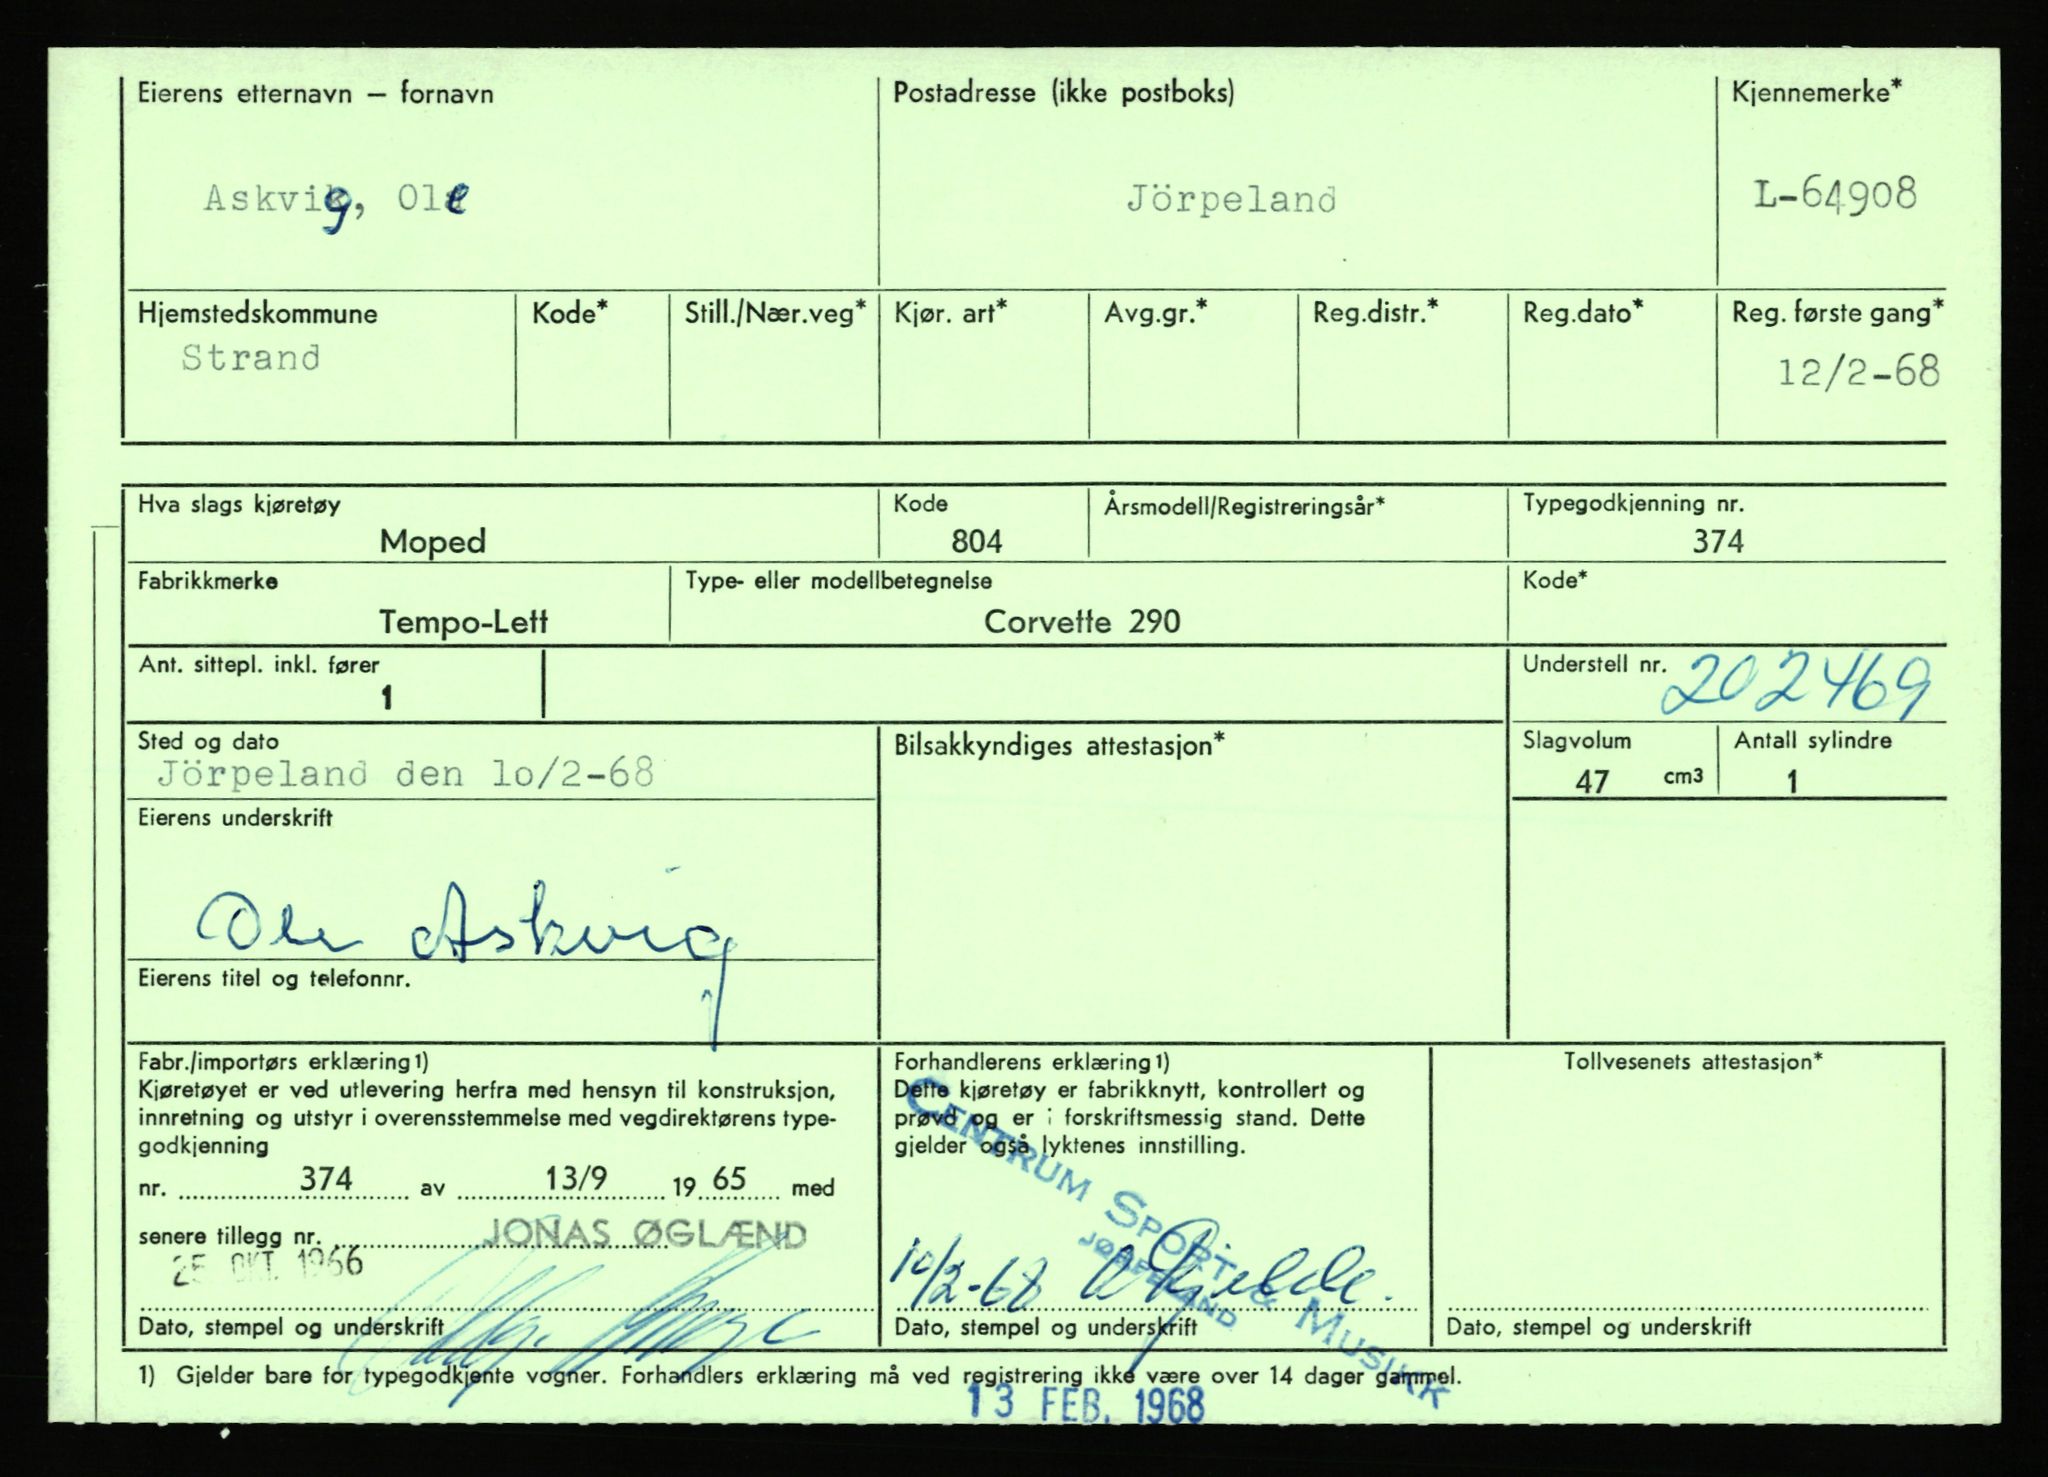 Eierens etternavn – fornavn
Postadresse (ikke postboks)
Kjennemerke*
Askvig, Ole
Jörpeland
L-64908
Hjemstedskommune
Kode*
Still./Nær.veg*
Kjør. art*
Avg.gr.*
Reg.distr.*
Reg.dato*
Reg. første gang*
Strand
12/2-68
Hva slags kjøretøy
Kode
Årsmodell/Registreringsår*
Typegodkjenning nr.
Moped
804
374
Fabrikkmerke
Type- eller modellbetegnelse
Kode*
Tempo-Lett
Corvette 290
Ant. sittepl. inkl. fører
1
Understell nr. 202469
Sted og dato
Bilsakkyndiges attestasjon*
Slagvolum
Antall sylindre
Jörpeland den lo/2-68
47 cm3
1
Eierens underskrift
Ole Askvig
Eierens titel og telefonnr.
Fabr./importørs erklæring 1)
Kjøretøyet er ved utlevering herfra med hensyn til konstruksjon,
innretning og utstyr i overensstemmelse med vegdirektørens type-
godkjenning
nr. 374 av 13/9 19 65 med
senere tillegg nr.
JONAS ØGLÆND
25. OKT. 1966
Dato, stempel og underskrift
Forhandlerens erklæring 1)
Dette kjøretøy er fabrikknytt, kontrollert og
prøvd og er i forskriftsmessig stand. Dette
gjelder også lyktenes innstilling.
CENTRUM SPORT & MUSIKK
JØRPELAND
10/2-68
Dato, stempel og underskrift
Tollvesenets attestasjon*
Dato, stempel og underskrift
1) Gjelder bare for typegodkjente vogner. Forhandlers erklæring må ved registrering ikke være over 14 dager gammel.
13 FEB. 1968